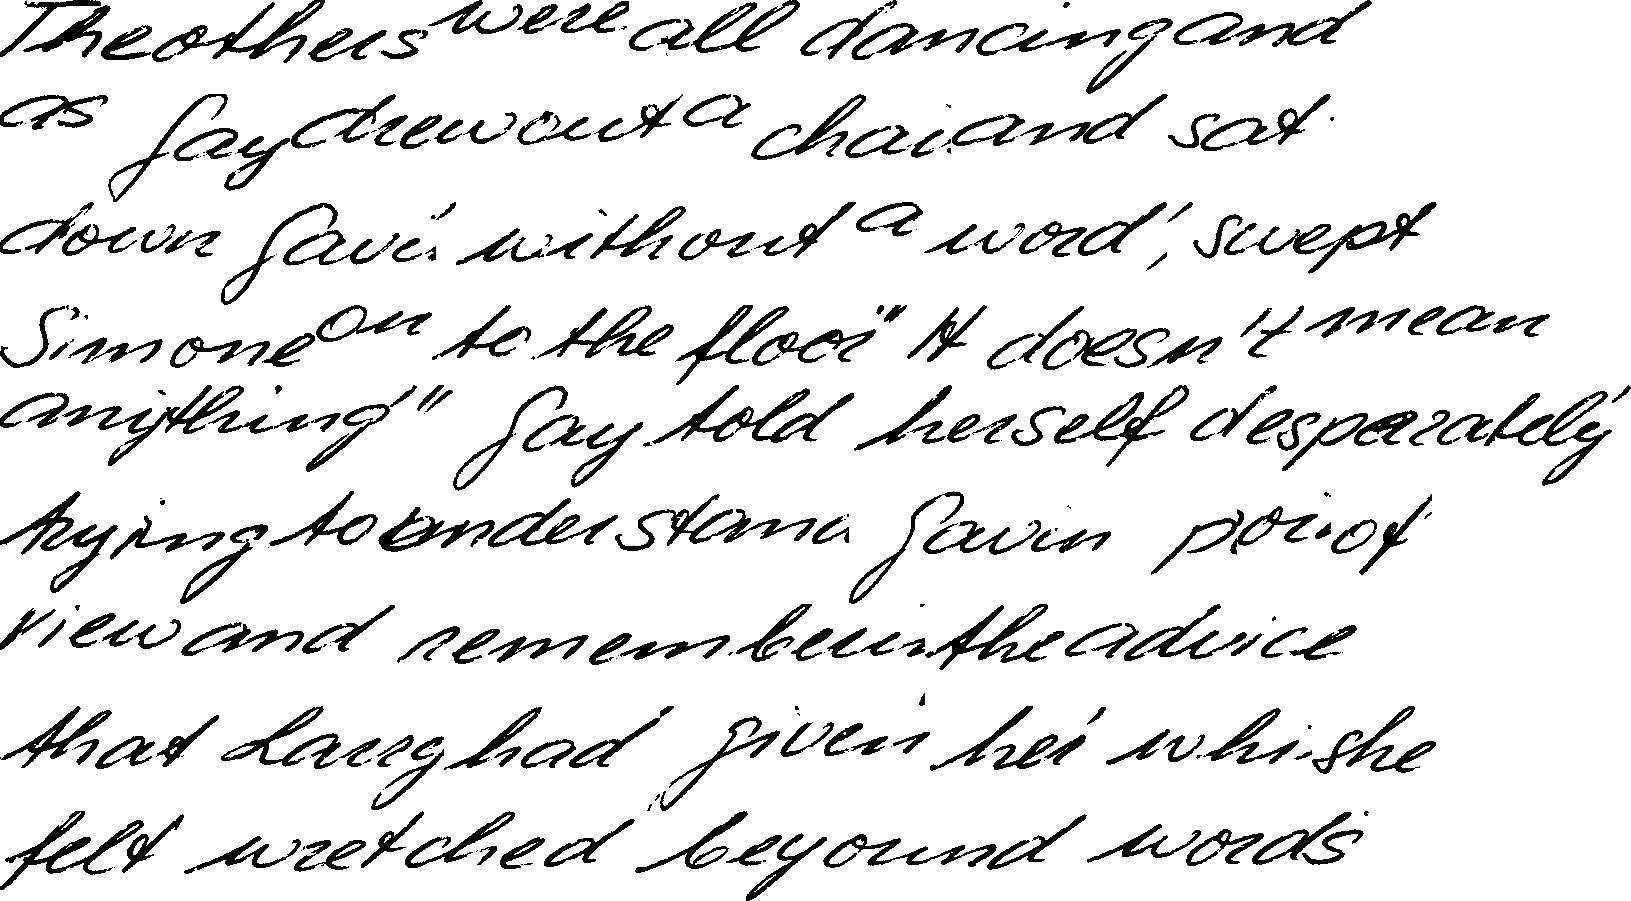 The others were all dancing and
as Gay drew out a chair and sat
down Gavin without a word, swept
Simone on to the floor " It doesn't mean
anything " Gay told herself desparately
trying to understand Gavin poin of
view and rememberin the advice
that Larry had given her whi she
felt wretched beyound words